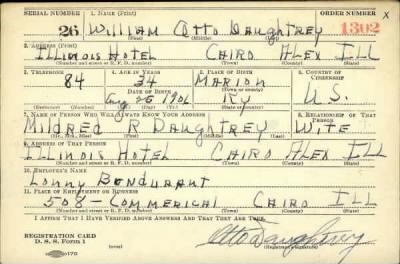 SERIAL NUMBER 1. NAME (Print) ORDER NUMBER X
26 William Otto Daughtrey 1302
(First) (Middle) (Last)
2. ADDRESS (Print)
Illinois Hotel Cairo Alex Ill
(Number and street or R. F. D. number) (Town) (County) (State)
3. TELEPHONE 4. AGE IN YEARS 5. PLACE OF BIRTH 6. COUNTRY OF CITIZENSHIP
84 34 Marion
DATE OF BIRTH (Town or county)
Aug 25 1906 Ky U.S.
(Exchange) (Number) (Mo.) (Day) (Yr.) (State or country)
7. NAME OF PERSON WHO WILL ALWAYS KNOW YOUR ADDRESS 8. RELATIONSHIP OF THAT PERSON
Mildred R Daughtrey Wife
(Mr., Mrs., Miss) (First) (Middle) (Last)
9. ADDRESS OF THAT PERSON
Illinois Hotel Cairo Alex Ill
(Number and street or R. F. D. number) (Town) (County) (State)
10. EMPLOYER'S NAME
Lonny Bondurant
11. PLACE OF EMPLOYMENT OR BUSINESS
508 - Commerical Cairo Ill
(Number and street or R. F. D. number) (Town) (County) (State)
I AFFIRM THAT I HAVE VERIFIED ABOVE ANSWERS AND THAT THEY ARE TRUE.
REGISTRATION CARD
D. S. S. Form 1
Otto Daughtrey
(Registrant's signature)